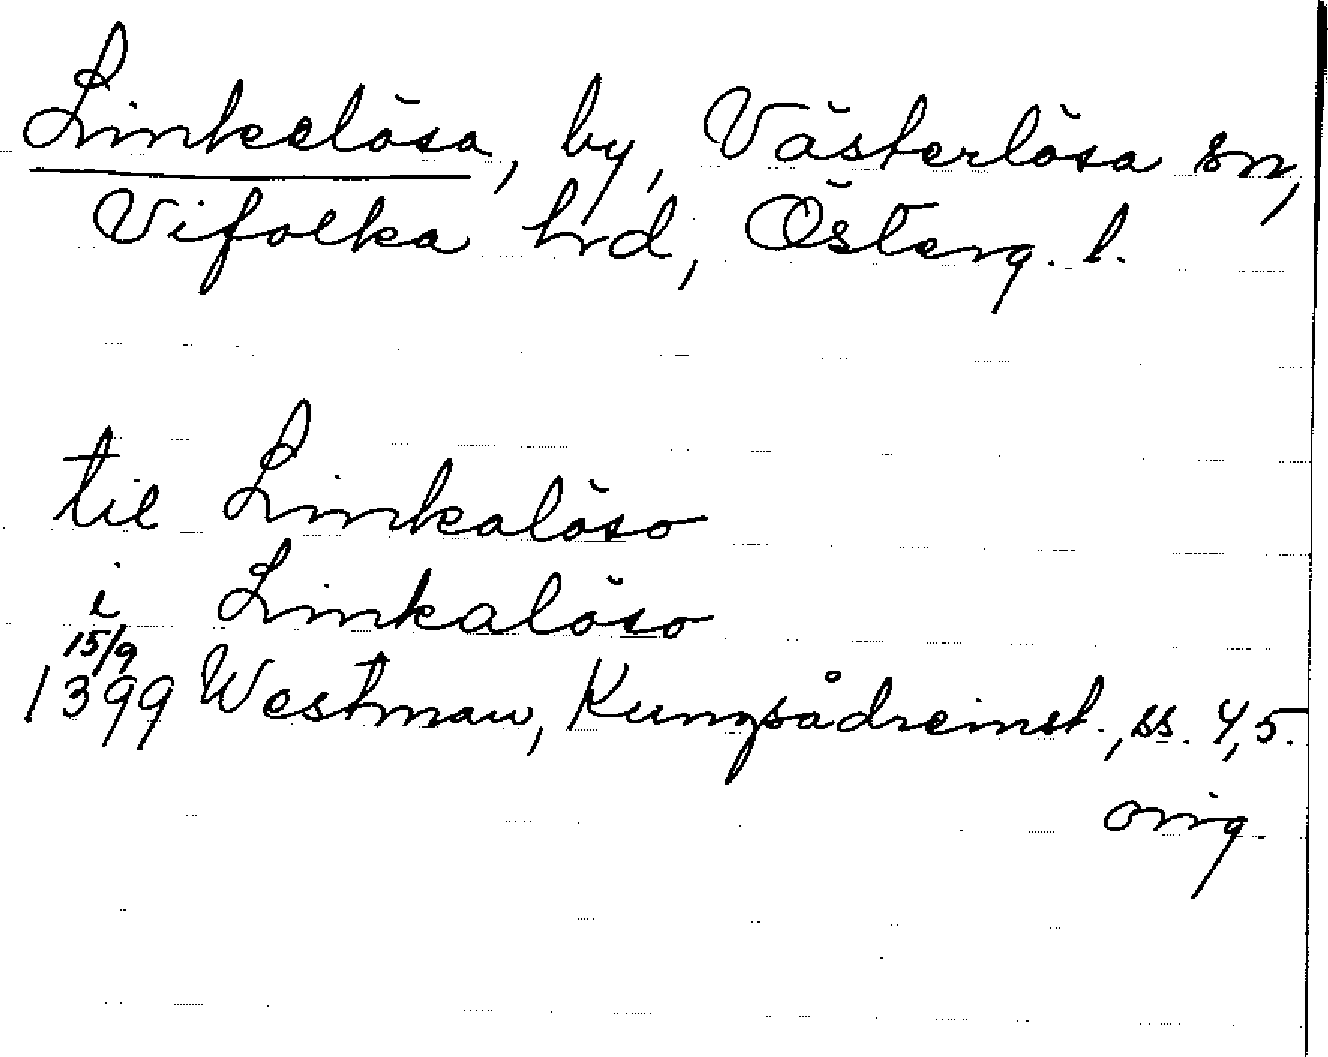 Linkelösa, by, Västerlösa sn,
Vifolka hrd, Österg. l.
til Linkalöso
i Linkalöso
15/9
1399 Westman, Kungsådreinst., ss. 4, 5.
orig.